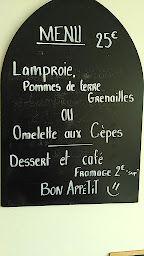 MENU 25€
Lamproie,
Pommes de terre
Grenailles
OU
Omelette aux Cèpes
Dessert et café
Fromage 2€ sup
Bon Appétit